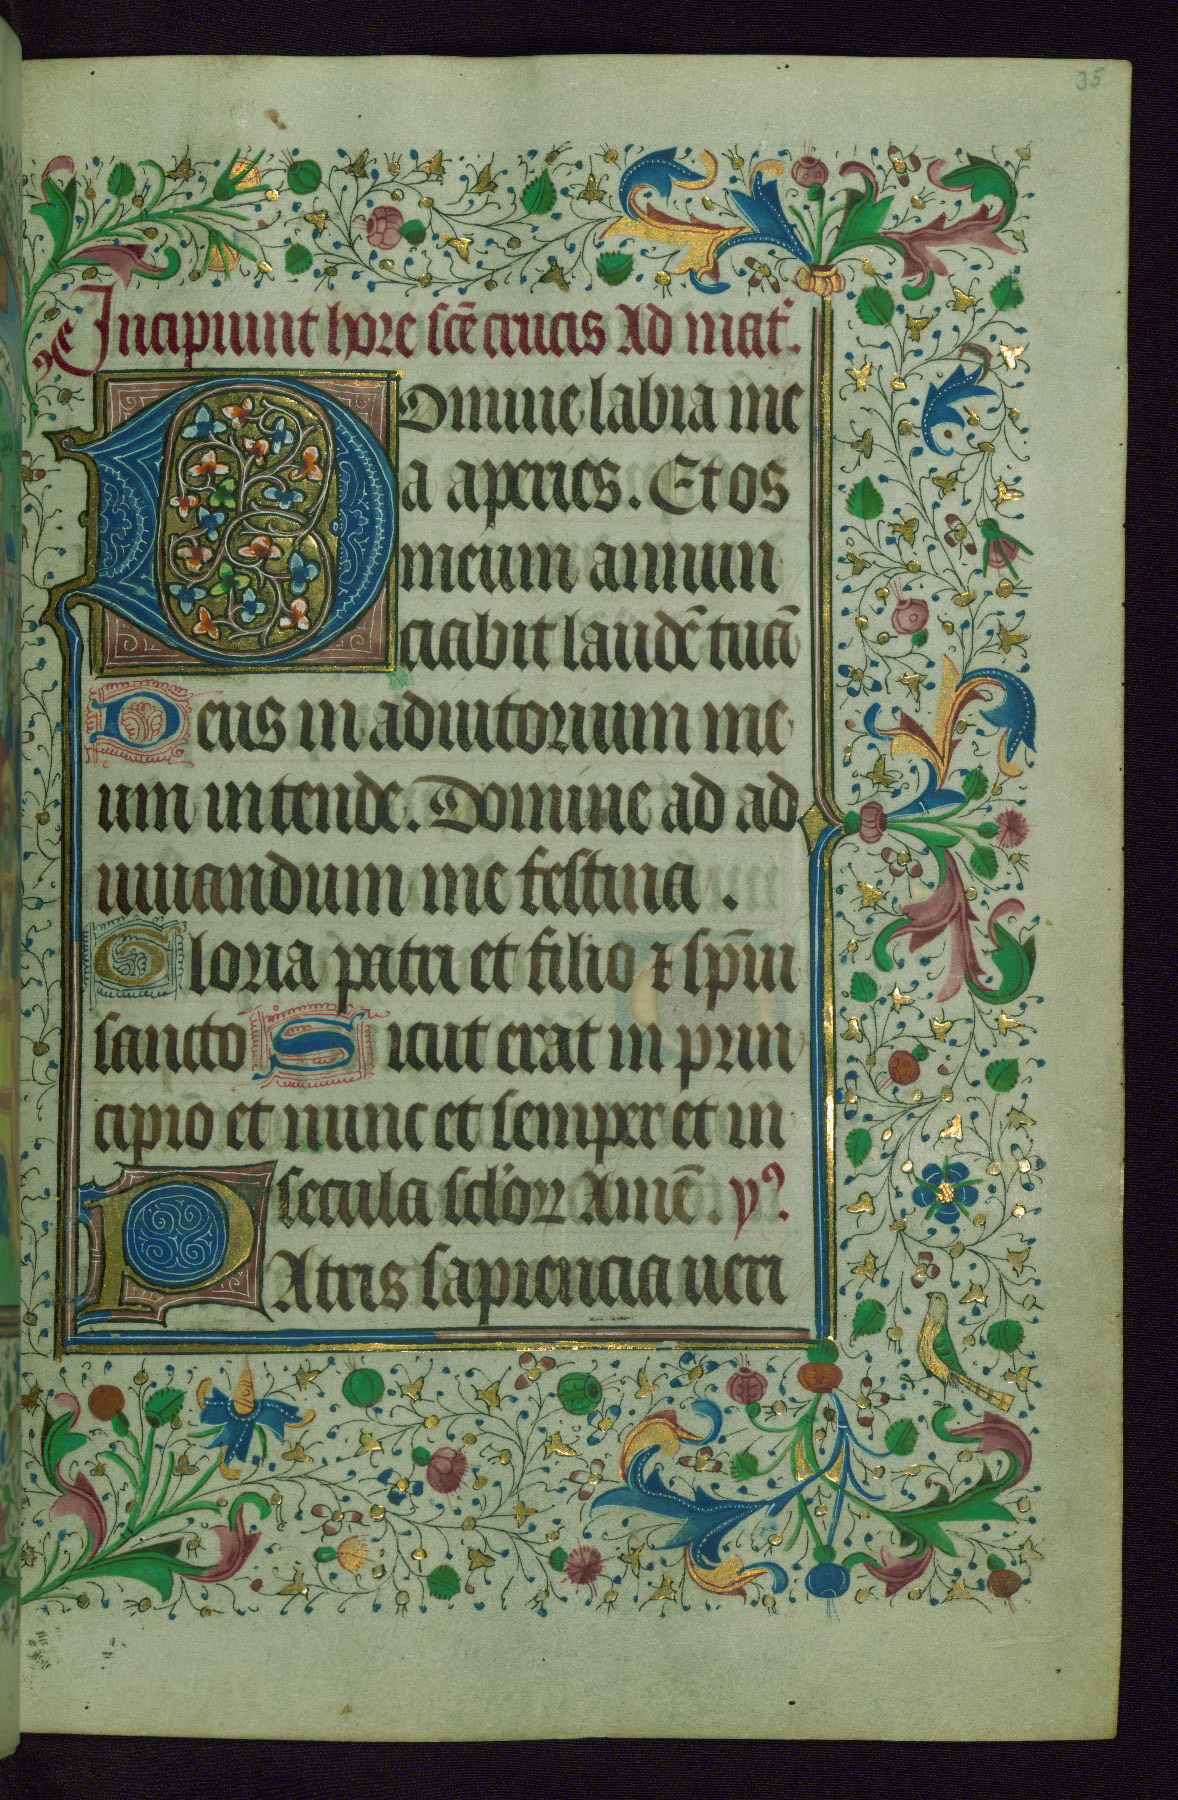 35
Incipiunt hore scē crucis Ad mat᷒.
Domine labia me
a aperies. Et os
meum annun
ciabit laudē tuā
Deus in adiutorium me
um intende. Domine ad ad
iuuandum me festina .
Gloria patri et filio ⁊ sp̄ui
sancto Sicut erat in prin
cipio et nunc et semper et in
secula sclo'ꝝ Amē. yꝰ.
PAtris sapiencia ueri